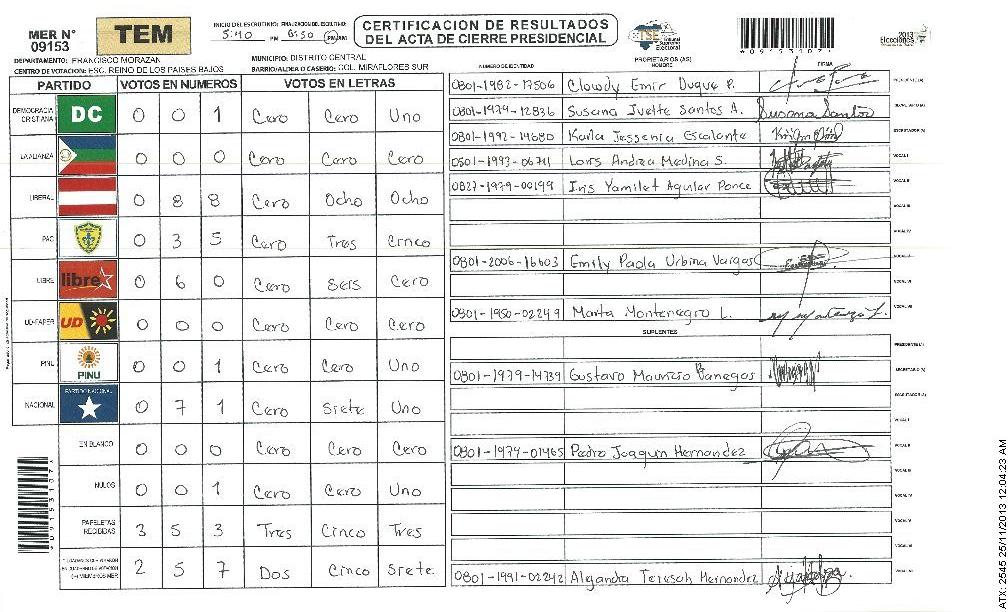 MER N° 09153
TEM
INICIO DEL ESCRUTINIO: 5:40 PM
FINALIZACION DEL ESCRUTINIO: 6:50 PM
CERTIFICACION DE RESULTADOS
DEL ACTA DE CIERRE PRESIDENCIAL
TSE Tribunal Supremo Electoral
2013 Elecciones
DEPARTAMENTO: FRANCISCO MORAZAN
MUNICIPIO: DISTRITO CENTRAL
CENTRO DE VOTACION: ESC. REINO DE LOS PAISES BAJOS
BARRIO/ALDEA O CASERIO: COL. MIRAFLORES SUR
PARTIDO VOTOS EN NUMEROS VOTOS EN LETRAS
DEMOCRACIA CRISTIANA DC 0 0 1 Cero Cero Uno
LA ALIANZA 0 0 0 Cero Cero Cero
LIBERAL 0 8 8 Cero Ocho Ocho
PAC 0 3 5 Cero Tres Cinco
LIBRE libre 0 6 0 Cero Seis Cero
UD-FAPER UD 0 0 0 Cero Cero Cero
PINU PINU 0 0 1 Cero Cero Uno
NACIONAL PARTIDO NACIONAL 0 7 1 Cero Siete Uno
EN BLANCO 0 0 0 Cero Cero Cero
NULOS 0 0 1 Cero Cero Uno
PAPELETAS RECIBIDAS 3 5 3 Tres Cinco Tres
CIUDADANOS QUE VOTARON EN CUADERNO DE VOTACION (+) MIEMBROS MER 2 5 7 Dos Cinco Siete
NUMERO DE IDENTIDAD PROPIETARIOS (AS) NOMBRE FIRMA
0801-1982-17506 Clowdy Emir Duque P. PRESIDENTE (A)
0801-1979-12836 Susana Ivette Santos A. Susana Santos SECRETARIO (A)
0801-1992-14680 Karla Jessenia Escalante ESCRUTADOR (A)
0801-1993-06711 Loris Andrea Medina S. VOCAL I
0827-1979-00199 Iris Yamilet Aguilar Ponce VOCAL II
VOCAL III
VOCAL IV
0801-2006-16603 Emily Paola Urbina Vargas VOCAL V
VOCAL VI
0801-1950-02249 Marta Montenegro L. VOCAL VII
SUPLENTES
PRESIDENTE (A)
0801-1979-14739 Gustavo Mauricio Banegas SECRETARIO (A)
ESCRUTADOR (A)
VOCAL I
0801-1974-01465 Pedro Joaquin Hernandez VOCAL II
VOCAL III
VOCAL IV
VOCAL V
VOCAL VI
0801-1991-02242 Alejandra Teresah Hernandez VOCAL VII
ATX: 2545 25/11/2013 12:04:23 AM